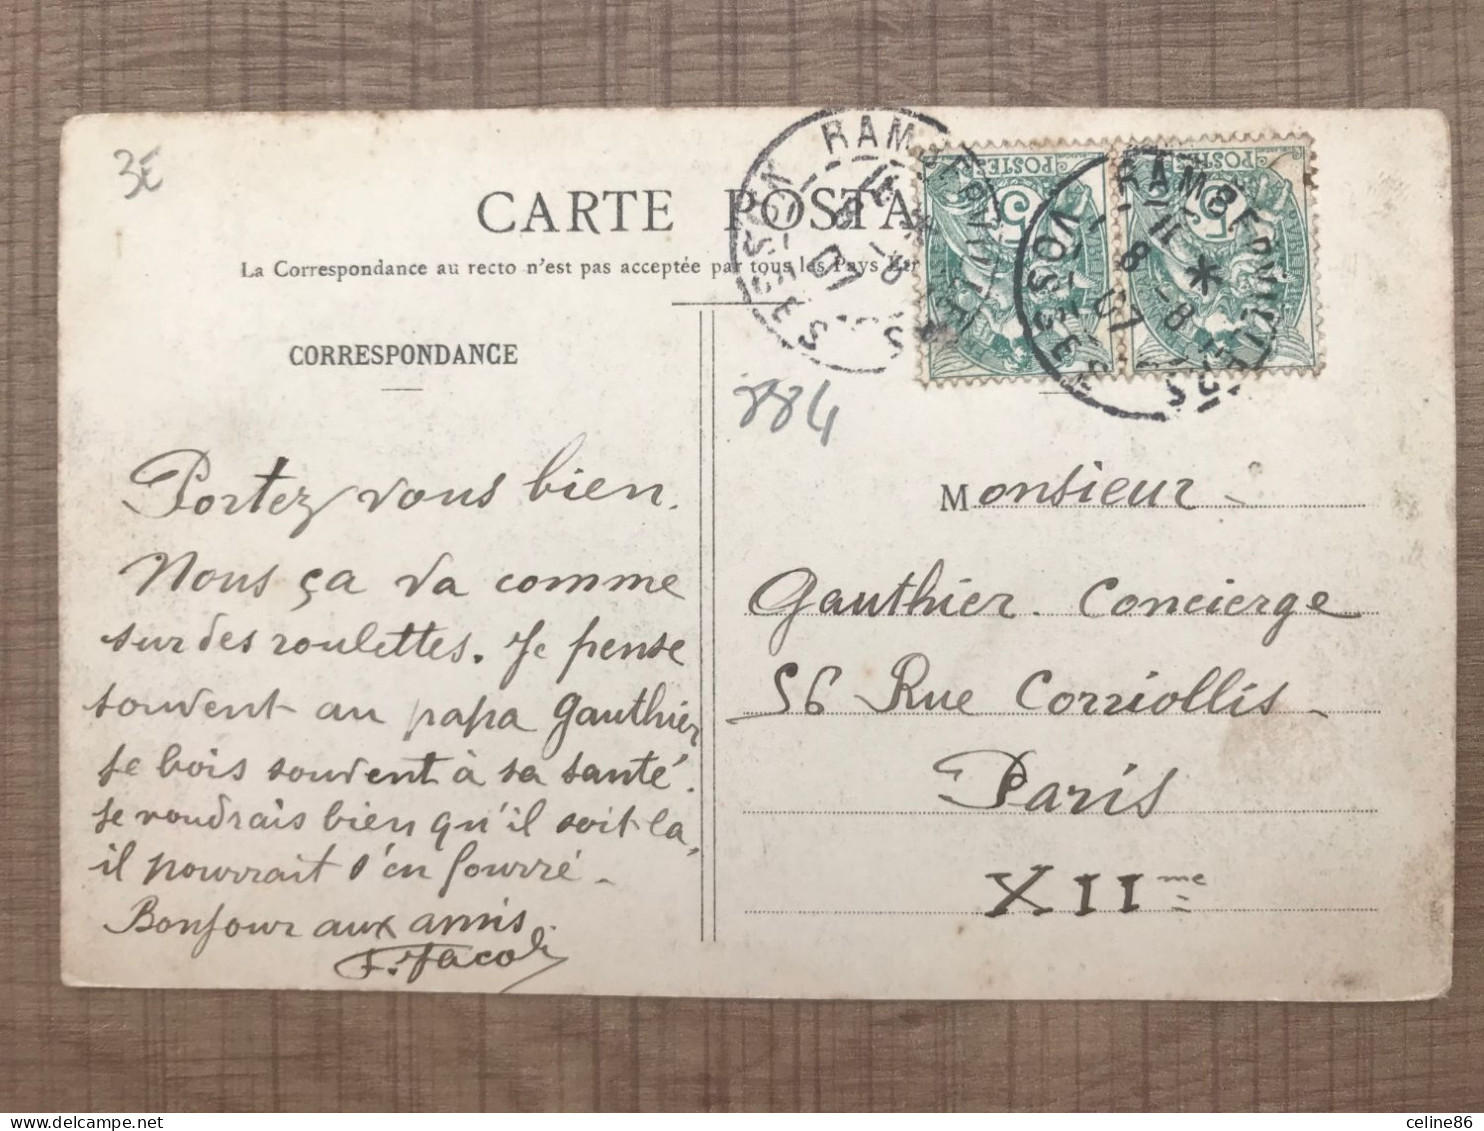 3E
CARTE POSTA
La Correspondance au recto n'est pas acceptée par tous les Pays Étr
RAMBERVILLERS
VOSGES
RAMBERVILLERS
11 * 8 - 8 07
VOSGES
POSTES
5
POSTES
5
CORRESPONDANCE
884
Portez vous bien.
Nous ça va comme
sur des roulettes. Je pense
souvent au papa Gauthier
Je bois souvent à sa santé.
Je voudrais bien qu'il soit la,
il pourrait s'en fourré -
Bonjour aux amis.
F. Jacob
Monsieur -
Gauthier. Concierge
56 Rue Corriollis -
Paris
XII me
celine86